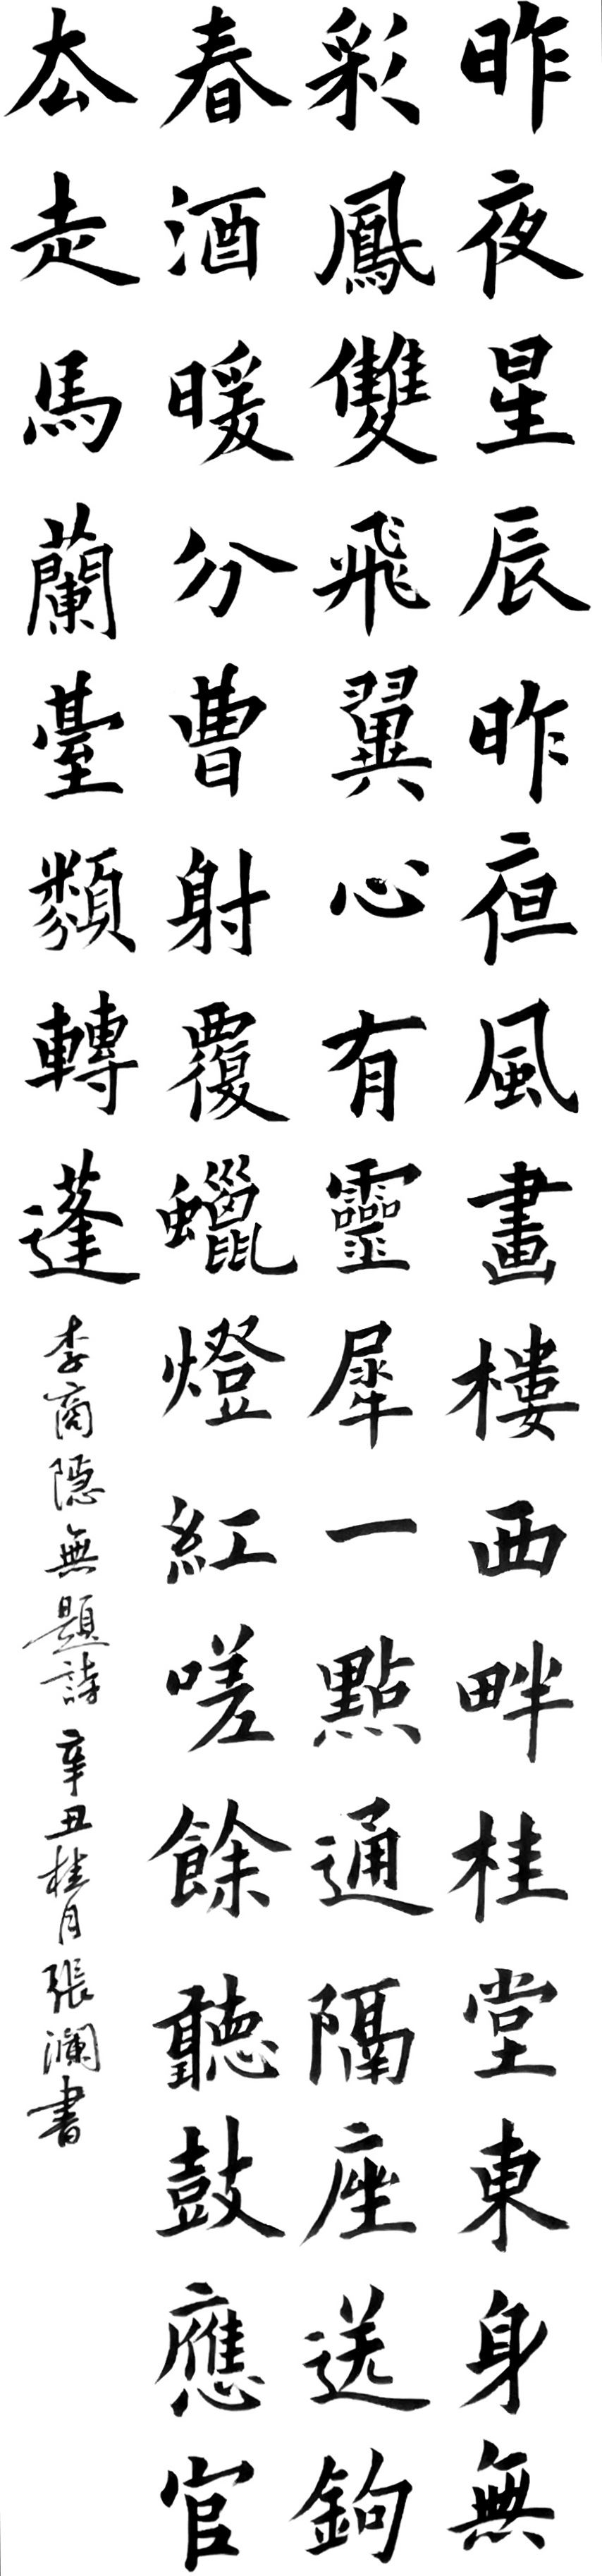 昨夜星辰昨夜風畫樓西畔桂堂東身無
彩鳳雙飛翼心有靈犀一點通隔座送鉤
春酒暖分曹射覆蠟燈紅嗟餘聽鼓應官
去走馬蘭臺類轉蓬
李商隱無題詩辛丑桂月張瀾書